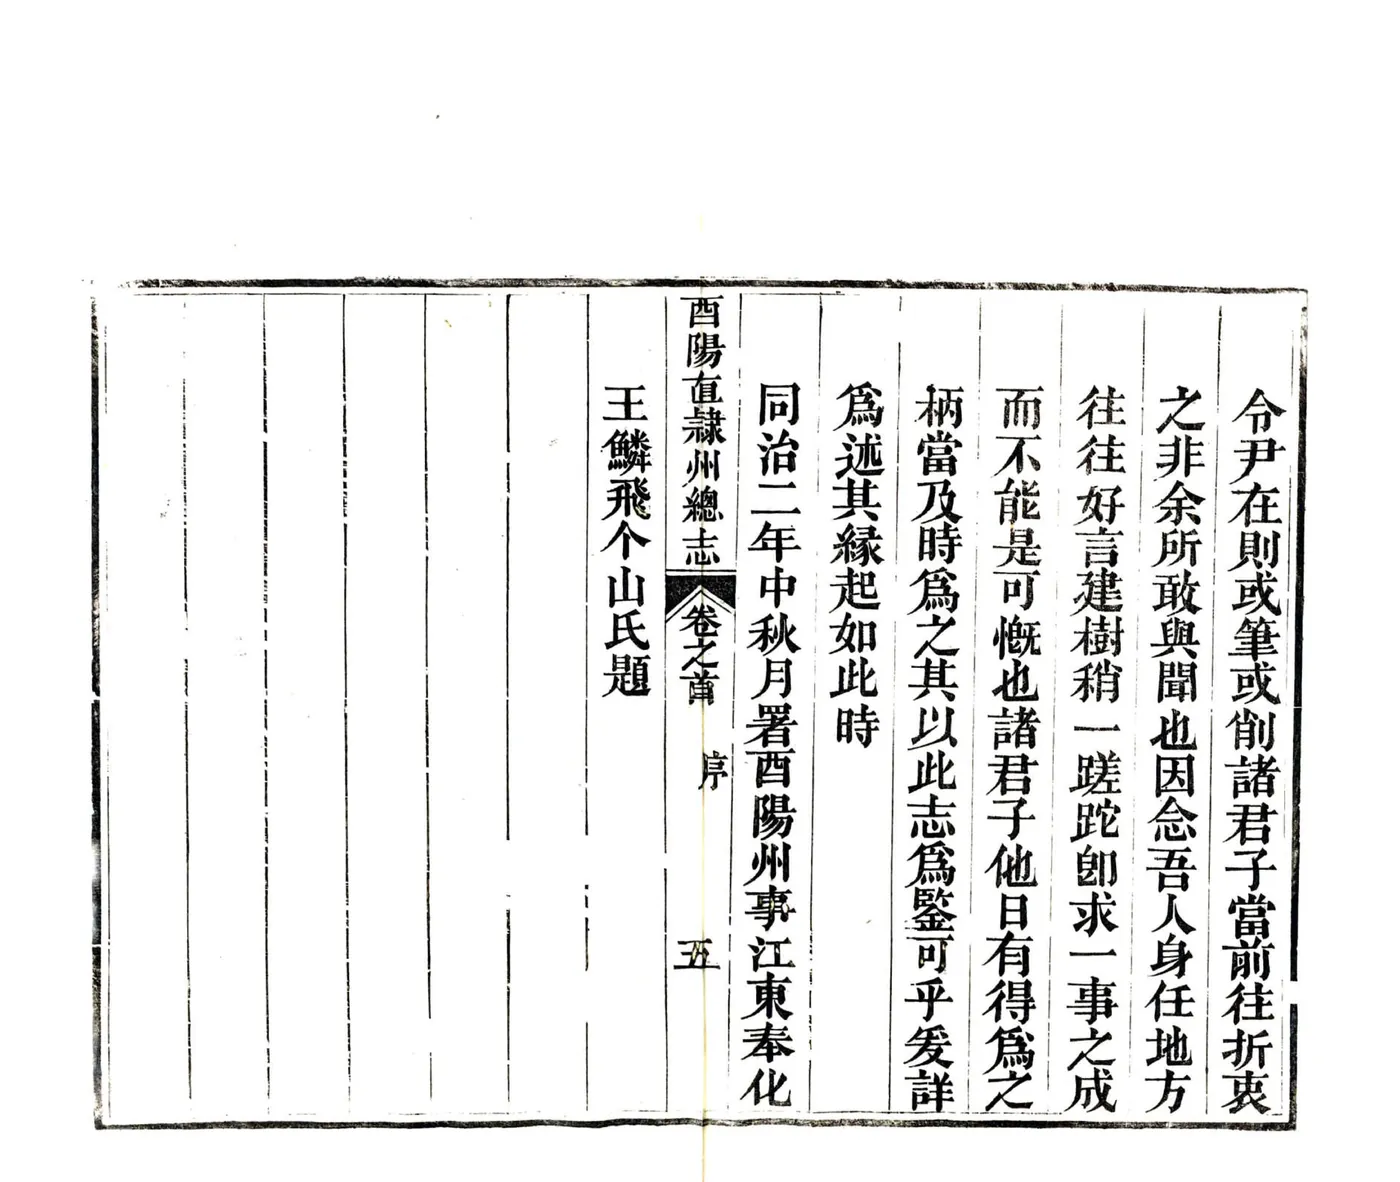 令尹在則或筆或削諸君子當前往折衷
之非余所敢與聞也因念吾人身任地方
往往好言建樹稍一蹉跎卽求一事之成
而不能是可慨也諸君子他日有得爲之
柄當及時爲之其以此志爲鑒可乎爰詳
爲述其緣起如此時
同治二年中秋月署酉陽州事江東奉化
酉陽直隸州總志 卷之首 序 五
王鱗飛个山氏題